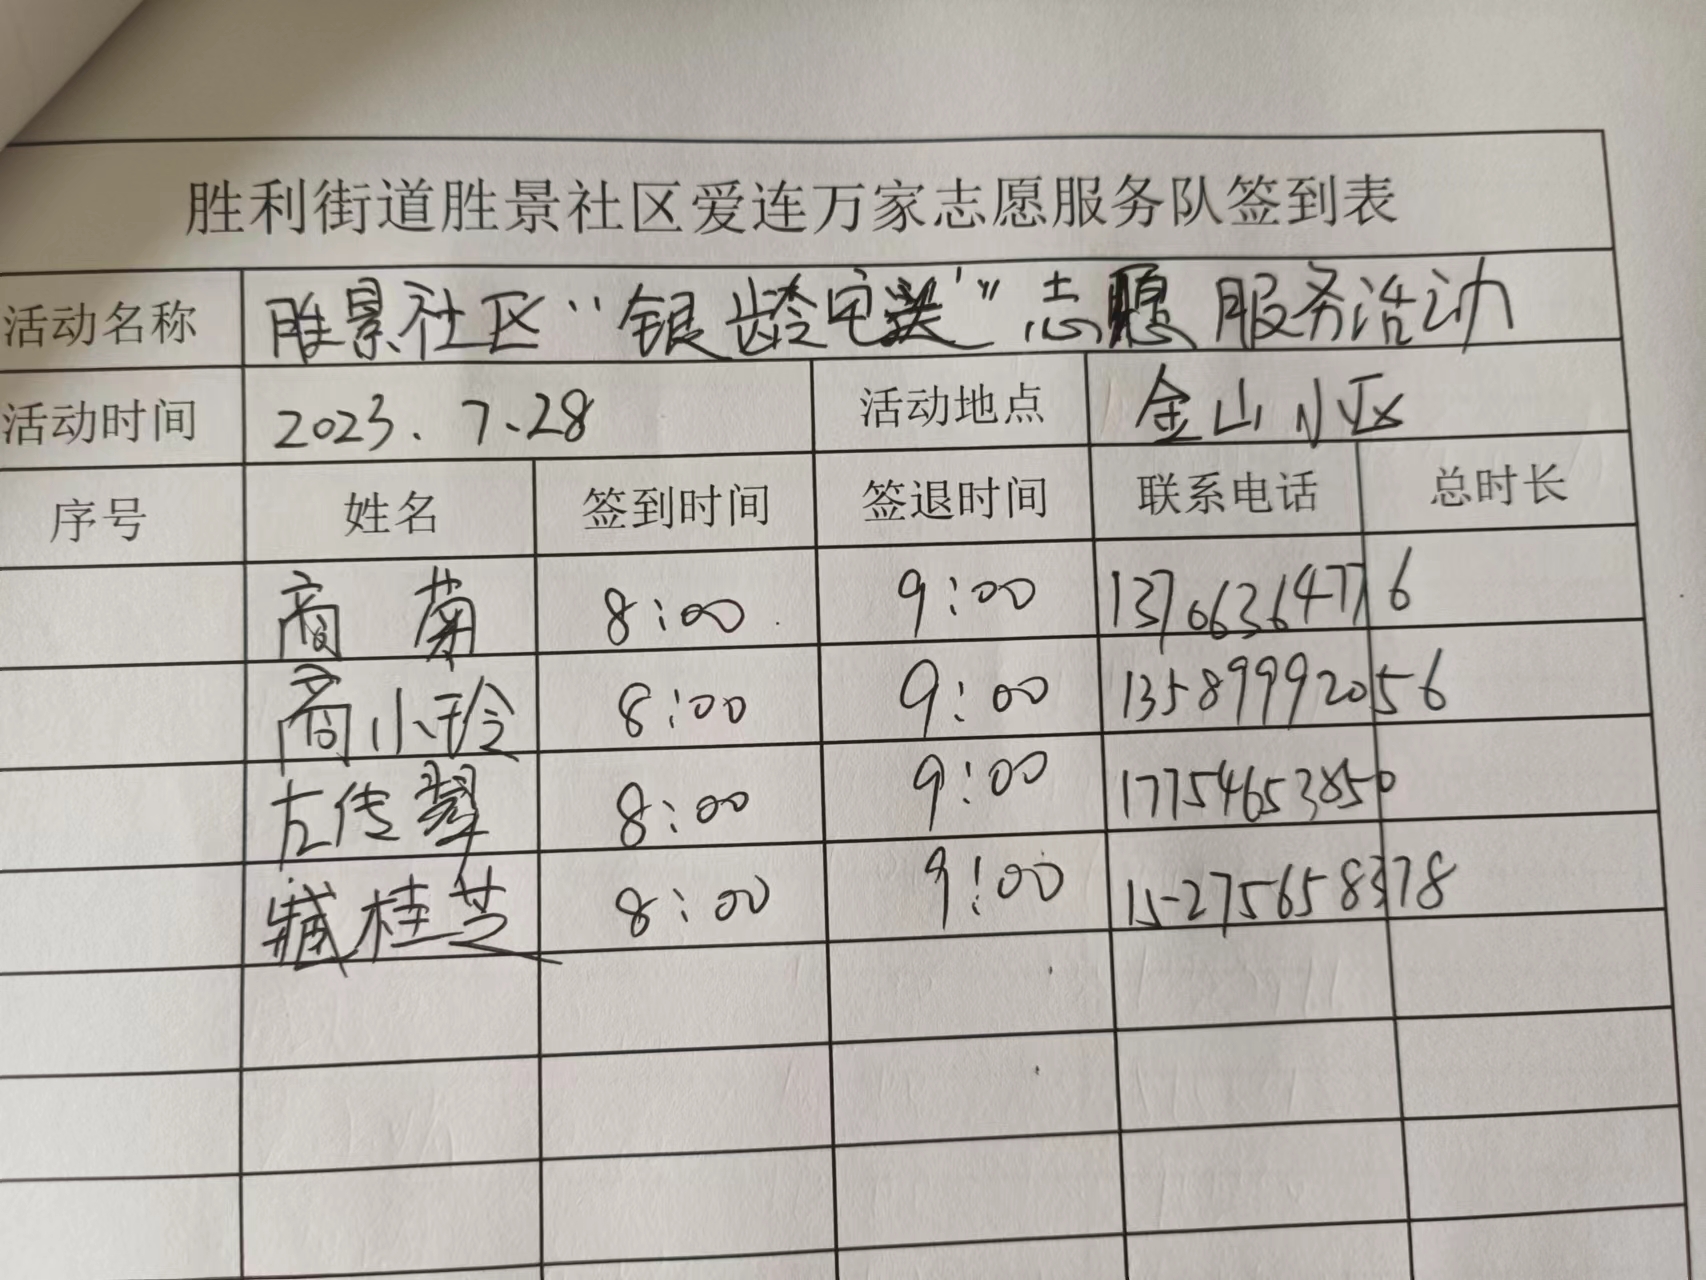 胜利街道胜景社区爱连万家志愿服务队签到表
活动名称 胜景社区“银龄宅送”志愿服务活动
活动时间 2023.7.28 活动地点 金山小区
序号 姓名 签到时间 签退时间 联系电话 总时长
商菊 8:00 9:00 13706364776
商小玲 8:00 9:00 13589992056
左传翠 8:00 9:00 17754653850
臧桂芝 8:00 9:00 15275658378